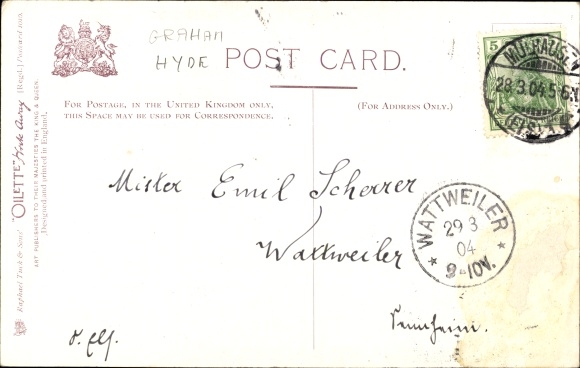 GRAHAM
HYDE
POST CARD.
FOR POSTAGE, IN THE UNITED KINGDOM ONLY,
THIS SPACE MAY BE USED FOR CORRESPONDENCE.
(FOR ADDRESS ONLY.)
Raphael Tuck & Sons' "OILETTE" Wide Away [Regd.] Postcard
ART PUBLISHERS TO THEIR MAJESTIES THE KING & QUEEN.
Designed and printed in England.
5
28.3.04.5-6
Mister Emil Scherrer
Wattweiler
Sennheim.
WATTWEILER
29 3
04
9-10V.